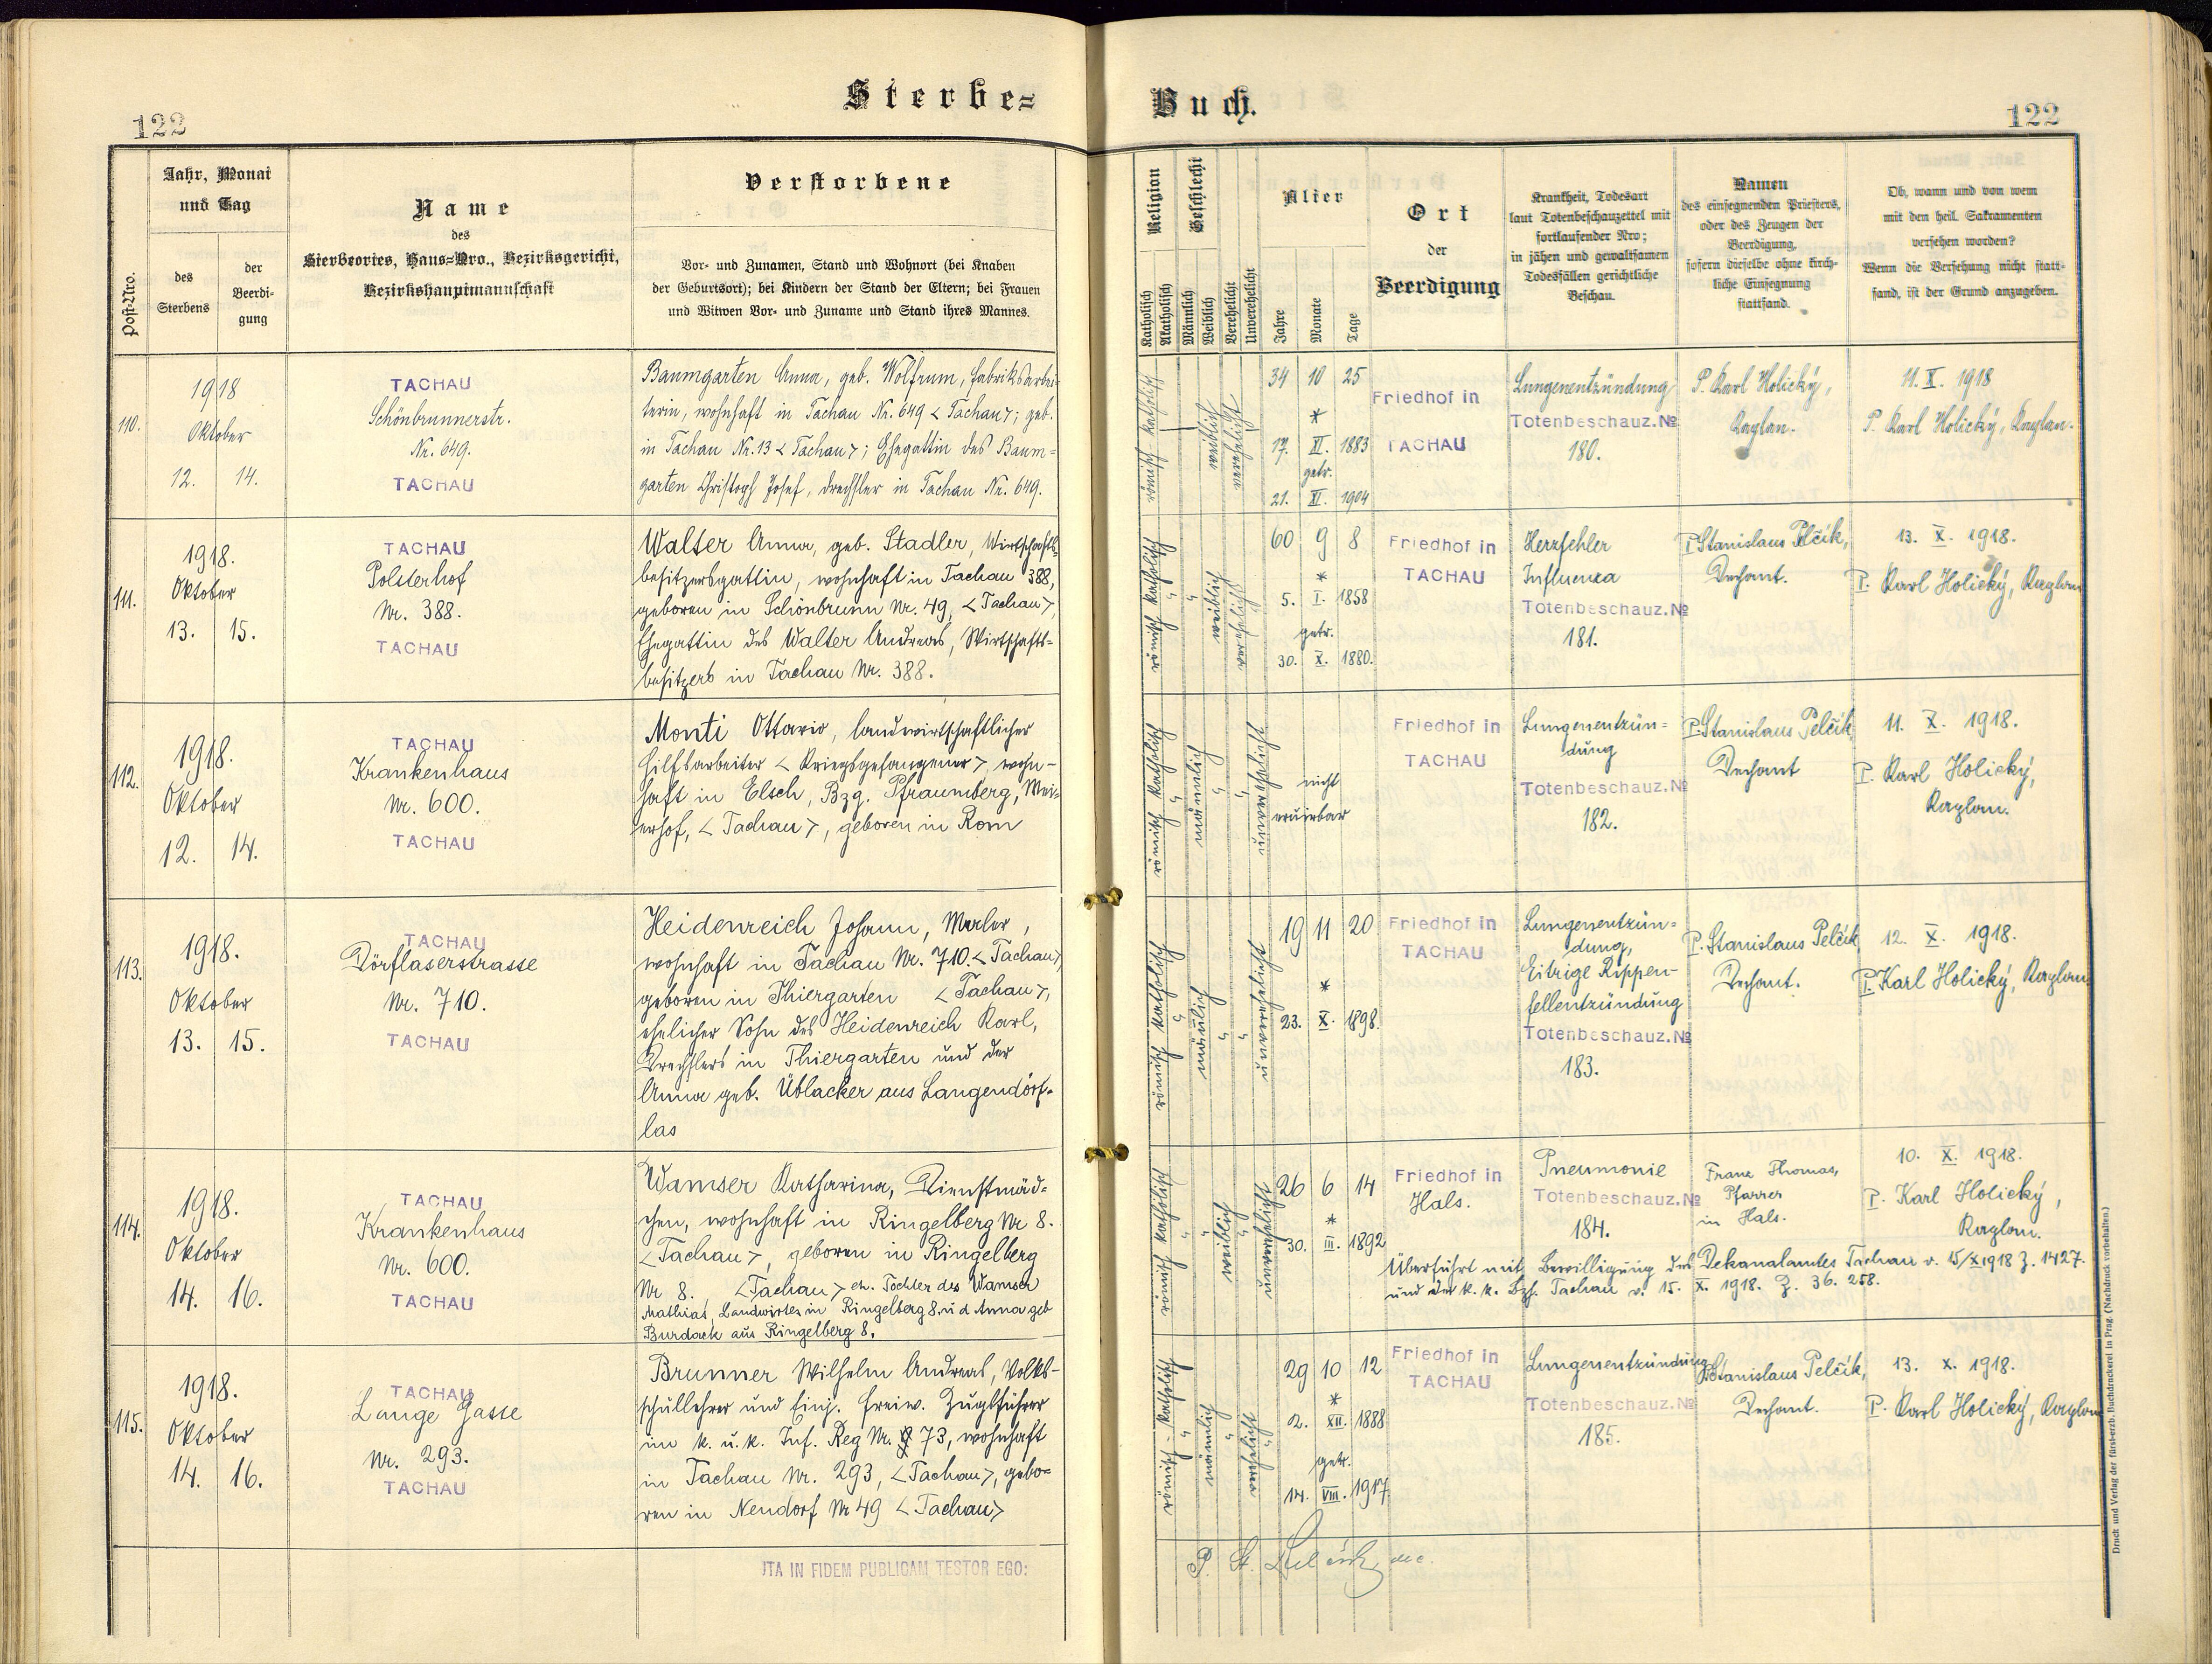 Sterbe=
Buch.
122
122
Post-Nro.
Jahr, Monat
und Tag
des
Sterbens
der
Beerdi-
gung
Name
des
Sterbeortes, Haus=Nro., Bezirksgericht,
Bezirkshauptmannschaft
Verstorbene
Vor- und Zunamen, Stand und Wohnort (bei Knaben
der Geburtsort); bei Kindern der Stand der Eltern; bei Frauen
und Witwen Vor- und Zuname und Stand ihres Mannes.
Religion
Katholisch
Akatholisch
Geschlecht
Männlich
Weiblich
Verehelicht
Unverehelicht
Alter
Jahre
Monate
Tage
Ort
der
Beerdigung
Krankheit, Todesart
laut Totenbeschauzettel mit
fortlaufender Nro;
in jähen und gewaltsamen
Todesfällen gerichtliche
Beschau.
Namen
des einsegnenden Priesters,
oder des Zeugen der
Beerdigung,
sofern dieselbe ohne kirch-
liche Einsegnung
stattfand.
Ob, wann und von wem
mit dem heil. Sakramenten
versehen worden?
Wenn die Versehung nicht statt-
fand, ist der Grund anzugeben.
110.
1918
Oktober
12. 14.
TACHAU
Schönbrunnerstr.
Nr. 649.
TACHAU
Baumgarten Anna, geb. Wolfrum, Fabriksarbei-
terin, wohnhaft in Tachau Nr. 649 <Tachau>; geb.
in Tachau Nr. 13 <Tachau>; Ehegattin des Baum=
garten Christoph Josef, Drechsler in Tachau Nr. 649.
römisch katholisch
weiblich
verehelicht
34 10 25
*
17. XI. 1883
getr.
21. XI. 1904
Friedhof in
TACHAU
Lungenentzündung
Totenbeschauz.No
180.
P. Karl Holický,
Kaplan.
11. X. 1918
P. Karl Holický, Kaplan.
111.
1918.
Oktober
13. 15.
TACHAU
Polsterhof
Nr. 388.
TACHAU
Walter Anna, geb. Stadler, Wirtschafts-
besitzersgattin, wohnhaft in Tachau 388,
geboren in Schönbrunn Nr. 49, <Tachau>,
Ehegattin des Walter Andreas, Wirtschafts=
besitzers in Tachau Nr. 388.
römisch katholisch
weiblich
verehelicht
60 9 8
*
5. I. 1858
getr.
30. X. 1880.
Friedhof in
TACHAU
Herzfehler
Influenza
Totenbeschauz.No
181.
P. Stanislaus Pelčik,
Dechant.
13. X. 1918.
P. Karl Holický, Kaplan
112.
1918.
Oktober
12. 14.
TACHAU
Krankenhaus
Nr. 600.
TACHAU
Monti Ottavio, landwirtschaftlicher
Hilfsarbeiter <Kriegsgefangener>, wohn-
haft in Elsch, Bzg. Pfraumberg, Mei-
erhof, <Tachau>, geboren in Rom
römisch katholisch
männlich
unverehelicht
nicht
eruirbar
Friedhof in
TACHAU
Lungenentzün=
dung
Totenbeschauz.No
182.
P. Stanislaus Pelčik,
Dechant
11. X. 1918.
P. Karl Holický,
Kaplan.
113.
1918.
Oktober
13. 15.
TACHAU
Dörflaserstrasse
Nr. 710.
TACHAU
Heidenreich Johann, Maler,
wohnhaft in Tachau Nr. 710. <Tachau>,
geboren in Thiergarten <Tachau>,
ehelicher Sohn des Heidenreich Karl,
Drechslers in Thiergarten und der
Anna geb. Üblacker aus Langendörf=
las
römisch katholisch
männlich
unverehelicht
19 11 20
*
23. X. 1898.
Friedhof in
TACHAU
Lungenentzün=
dung,
Eitrige Rippen-
fellentzündung
Totenbeschauz.No
183.
P. Stanislaus Pelčik
Dechant.
12. X. 1918.
P. Karl Holický, Kaplan
114.
1918.
Oktober
14. 16.
TACHAU
Krankenhaus
Nr. 600.
TACHAU
Wamser Katharina, Dienstmäd=
chen, wohnhaft in Ringelberg Nr 8.
<Tachau>, geboren in Ringelberg
Nr 8. <Tachau> eh. Tochter des Wamser
Mathias, Landwirtes in Ringelberg 8. u d Anna geb
Burdack aus Ringelberg 8.
römisch katholisch
weiblich
unverehelicht
26 6 14
*
30. III. 1892
Friedhof in
Hals.
Pneumonie
Totenbeschauz.No
184.
Franz Thomas,
Pfarrer
in Hals.
10. X. 1918.
P. Karl Holický,
Kaplan.
Überführt mit Bewilligung des Dekanalamtes Tachau v. 15/X 1918 Z. 1427.
und der k. k. Bzh. Tachau v. 15. X. 1918. Z. 36. 258.
115.
1918.
Oktober
14. 16.
TACHAU
Lange Gasse
Nr. 293.
TACHAU
Brunner Wilhelm Andreas, Volks-
schullehrer und Einj. freiw. Zugsführer
im k. u. k. Inf. Reg Nr. 73, wohnhaft
in Tachau Nr. 293, <Tachau>, gebo=
ren in Neudorf Nr 49 <Tachau>
römisch = katholisch
männlich
verehelicht
29 10 12
*
2. XII. 1888
getr.
14. VIII. 1917
Friedhof in
TACHAU
Lungenentzündung
Totenbeschauz.No
185.
P. Stanislaus Pelčik,
Dechant.
13. X. 1918.
P. Karl Holický, Kaplan
ITA IN FIDEM PUBLICAM TESTOR EGO:
P. St. Pelčik
Druck und Verlag der fürst-erzb. Buchdruckerei in Prag. (Nachdruck vorbehalten.)